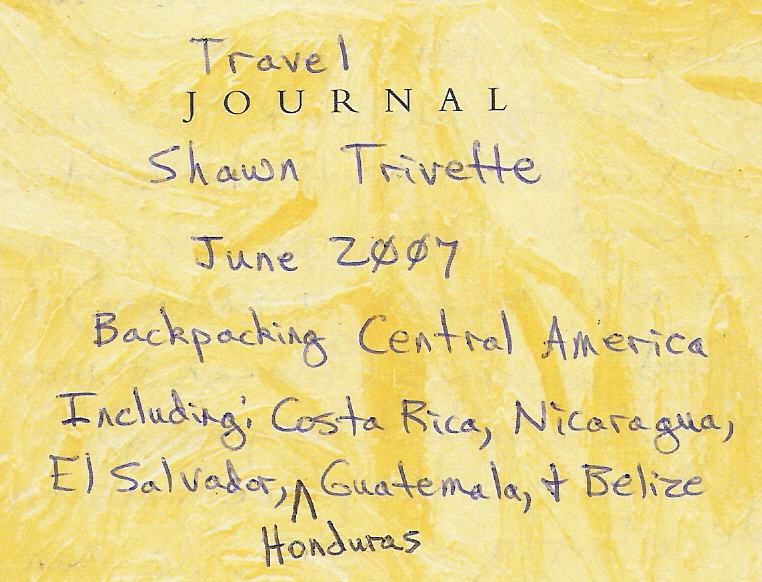 Travel
JOURNAL
Shawn Trivette
June 2007
Backpacking Central America
Including: Costa Rica, Nicaragua,
El Salvador, ^ Guatemala, & Belize
Honduras